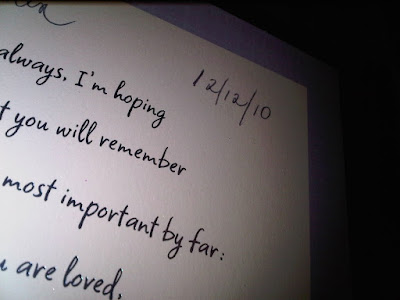 always, I'm hoping
12/12/10
you will remember
most important by far:
are loved,